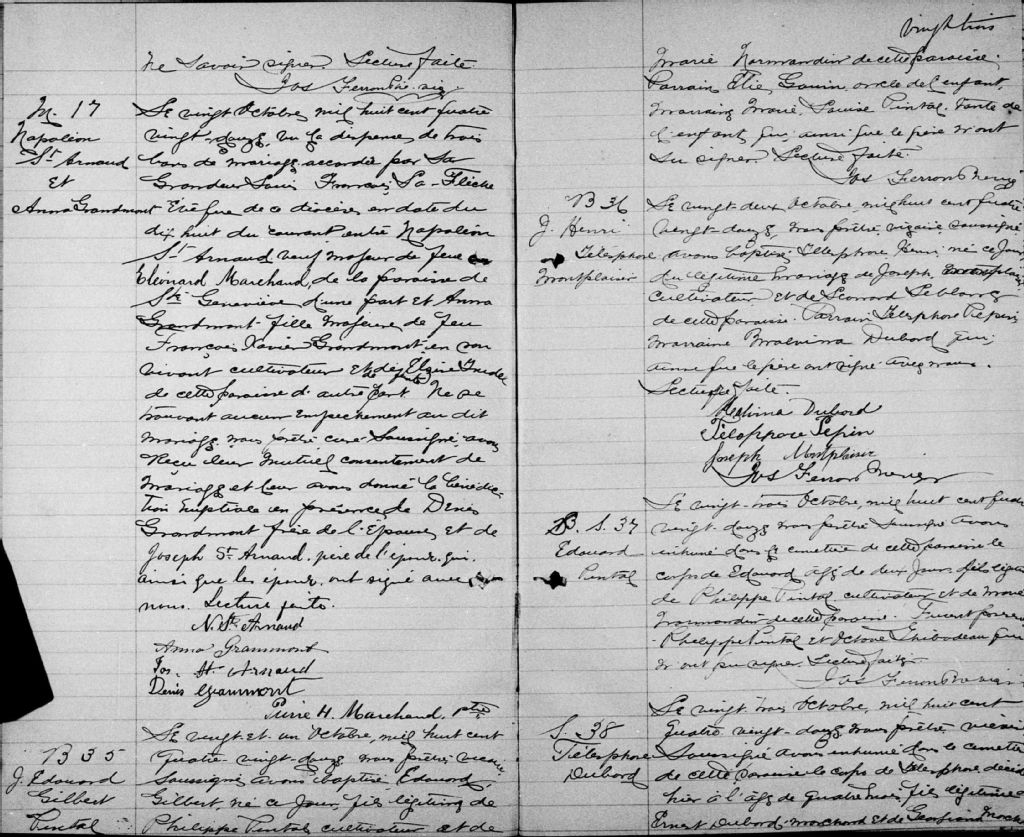 ne savoir signer. Lecture faite
Jos Ferron Ptre vic
M. 17
Napoléon
St Arnaud
et
Anna Grandmont
Le vingt Octobre, mil huit cent quatre
vingt-douze, vu la dispense de trois
bans de mariage accordée par Sa
Grandeur Louis François La-Flèche
Evêque de ce diocèse en date du
dix huit du courant entre Napoléon
St Arnaud veuf majeur de feue
Eléonard Marchand, de la paroisse de
Ste Geneviève d'une part et Anna
Grandmont fille majeure de feu
François Xavier Grandmont, en son
vivant cultivateur et de
de cette paroisse d'autre part. Ne se
trouvant aucun empêchement au dit
mariage, nous prêtre curé soussigné, avons
reçu leur mutuel consentement de
mariage et leur avons donné la bénédic-
tion nuptiale en présence de Denis
Grandmont frère de l'Epouse et de
Joseph St Arnaud, père de l'époux qui
ainsi que les époux, ont signé avec
nous. Lecture faite.
N. St Arnaud
Anna Grammont
Jos. St. Arnaud
Denis Grammont
Pierre H. Marchand, ptre
B 35
J. Edouard
Gilbert
Pintal
Le vingt et un Octobre, mil huit cent
quatre-vingt-douze nous prêtre vicaire
soussigné avons baptisé Edouard,
Gilbert, né ce jour, fils légitime de
Philippe Pintal cultivateur et de
vingt trois
Marie Normandin de cette paroisse.
Parrain Elie Gouin, oncle de l'enfant,
Marraine Marie Louise Pintal, tante de
l'enfant, qui ainsi que le père n'ont
su signer Lecture faite.
Jos Ferron
B 36
J. Henri
Télesphore
Montplaisir
Le vingt deux Octobre, mil huit cent quatre
vingt-douze nous prêtre, vicaire soussigné
avons baptisé Télesphore Henri né ce jour,
du légitime mariage de Joseph Montplaisir
cultivateur et de Leonard Leblanc
de cette paroisse. Parrain Télesphore Pepin
Marraine Malvina Dubord qui,
ainsi que le père ont signé avec nous.
Lecture faite.
Malvina Dubord
Télésphore Pepin
Joseph Montplaisir
Jos Ferron
B. S. 37
Edouard
Pintal
Le vingt-trois Octobre, mil huit cent quatre
vingt-douze nous prêtre soussigné avons
inhumé dans le cimetière de cette paroisse le
corps de Edouard agé de deux jours fils légitime
de Philippe Pintal cultivateur et de Marie
Normandin de cette paroisse. Furent présents
Philippe Pintal et Octave Thibodeau qui
n'ont pu signer. Lecture faite
Jos Ferron
S. 38
Télesphore
Dubord
Le vingt-trois Octobre, mil huit cent
quatre-vingt-douze nous prêtre, vicaire
soussigné avons inhumé dans le cimetière
de cette paroisse le corps de Télesphore, décédé
hier à l'âge de quatre mois fils légitime
Ernest Dubord marchand et de